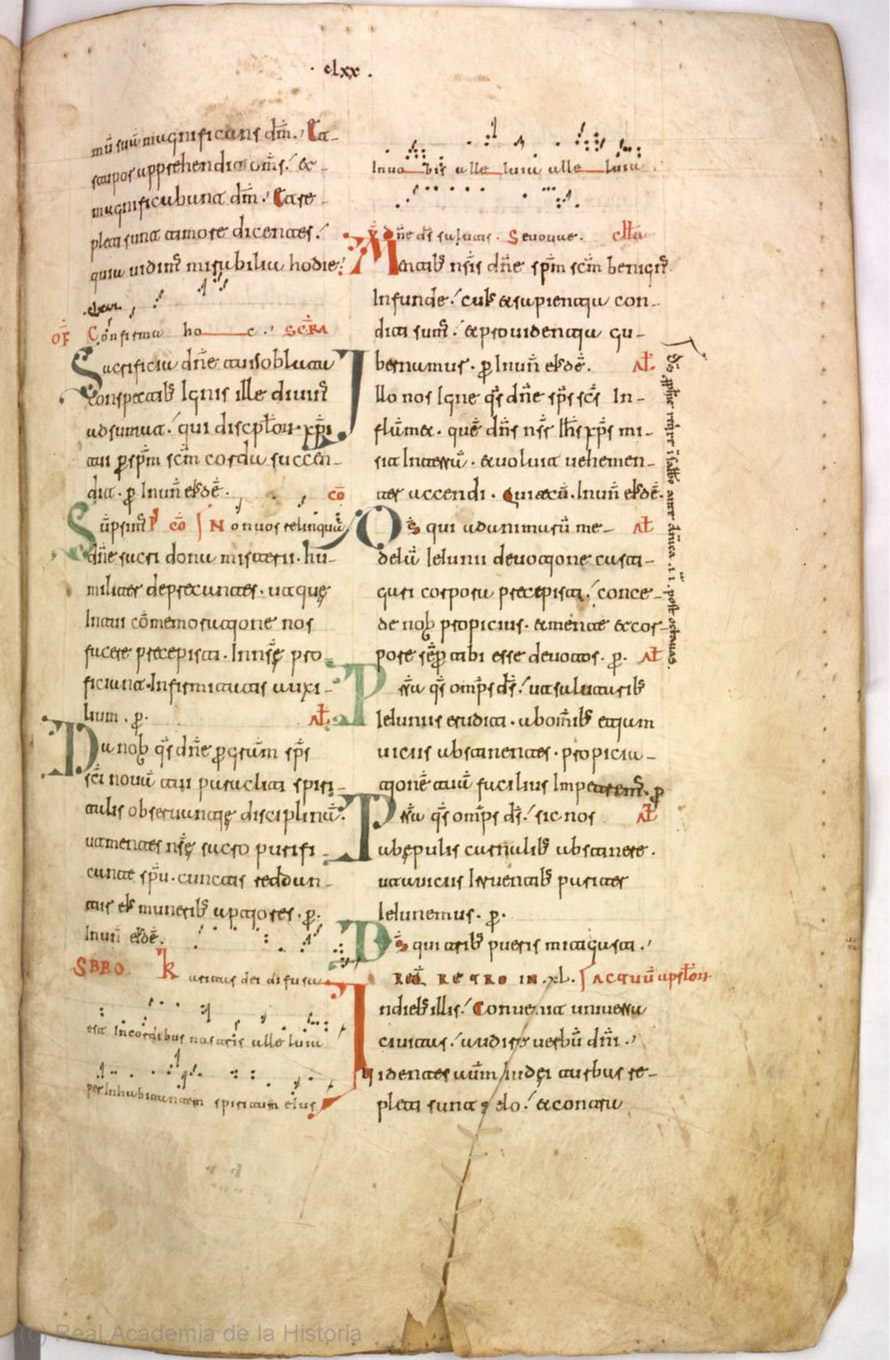 · clxx ·
mū suū magnificans dm̄. Ca-
sas apprehendit om̄s. &
magnificabant dm̄. & re-
pleti sunt timore dicentes.
quia uidim̄ mirabilia hodie.
OF̄ Confirma ho c. SCR̄A
Sacrificia dn̄e tuis oblata
conspectib; Ignis ille diuin̄
adsumat. qui discipłor xp̄i
tui p sp̄m scm̄ corda succen-
dit. p. In un̄ eḱdē. cō
cō Non uos relinquā
dn̄e sacri dona misterii. hu-
militer deprecantes. ut que
In tui cōmemoratione nos
facere precepisti. In nr̄ę pro-
ficiant Infirmitatis auxi-
lium. p. AŁ
Da nob qs̄ dn̄e p gratiam sp̄s
sc̄i nouā tui paracliti spiri-
talis obseruantię disciplinā.
ut mentes nr̄ę sacro purifi-
cate cunctis reddan-
tur eius munerib; aptiores. p.
In un̄ eḱdē.
SBBO. Karitas dei difusa
est In cordibus nostris alleluia
per Inhabitantem spiritum eius
In uobis alleluia alleluia
dn̄e ds̄ salutis. Seuouae. cłła
Mentib; nr̄is dn̄e sp̄m scm̄ benign̄
Infunde. cui; & sapientia con-
diti sum̄. & prouidentia gu-
bernamur. p In un̄ eḱdē. AŁ
Illo nos Igne qs̄ dn̄e sp̄s sc̄s In-
flāmet. quē dn̄s nr̄ Ih̄s xp̄s mi-
sit In terrā. & uoluit uehemen-
ter accendi. Qui tecū. In un̄ eḱdē.
Ds̄ qui ad animarū me- AŁ
delā Ieiunii deuotione casti-
gari corpora precepisti. conce-
de nob propicius. & mente & cor-
pore sēp tibi esse deuotos. p. AŁ
Prēsta qs̄ omp̄s ds̄. ut salutarib;
Ieiuniis eruditi. ab om̄ib; etiam
uiciis abstinentes. propicia-
tionē tuā facilius Impetrem̄. p
Prēsta qs̄ omp̄s ds̄. sic nos AŁ
ab epulis carnalib; abstinere.
ut a uiciis Irruentib; pariter
Ieiunemus. p.
Ds̄ qui trib; pueris mitigasti.
REQ̄ RETRO IN .xl. ACTUŪ apsłor
In dieb; illis. Conuenit uniuersa
ciuitas. audire uerbū dm̄i.
Uidentes autm̄ Iudęi turbas re-
pleti sunt zelo. & contra